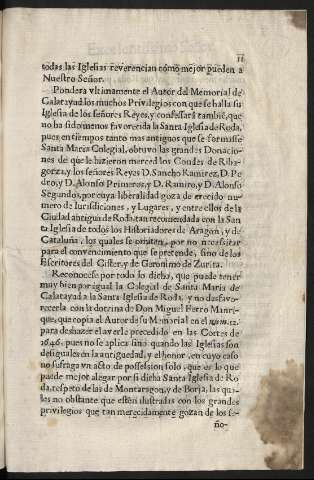 11
todas las Iglesias reverencian cómo mejor pueden a
Nuestro Señor.
Pondera vltimamente el Autor del Memorial de
Calatayud los muchos Privilegios con que se halla su
Iglesia de los señores Reyes, y confessarà tambiẽ, que
no ha sido menos favorecida la Santa Iglesia de Roda,
pues en tiempos tanto mas antiguos que se formasse
Santa Maria Colegial, obtuvo las grandes Donacio-
nes de que le hizieron merced los Condes de Riba-
gorza, y los señores Reyes D. Sancho Ramirez, D. Pe
dro, y D. Alonso Primeros, y D. Ramiro, y D. Alonso
Segundos, por cuya liberalidad goza de crecido nu-
mero de Iurisdiciones, y Lugares, y entre ellos de la
Ciudad antigua de Roda, tan recomendada con la San
ta Iglesia de todos los Historiadores de Aragon, y de
Cataluña, los quales se omiten, por no necessitar
para el convencimiento que se pretende, sino de los
Escritores del Cister, y de Geronimo de Zurita.
Reconocese por todo lo dicho, que puede tener
muy bien por igual la Colegial de Santa Maria de
Calatayud a la Santa Iglesia de Roda, y no dasfavo-
recerla con la dotrina de Don Miguel Ferro Manri-
que, que copia el Autor de su Memorial en el num. 12.
para deshazer el averle precedido en las Cortes de
1646. pues no se aplica sino quando las Iglesias son
desiguales en la antiguedad, y el honor, en cuyo caso
no sufraga vn acto de possession solo, que es lo que
puede mejor alegar por si dicha Santa Iglesia de Ro
da, respeto de las de Montaragon, y de Borja, las qua-
les no obstante que estèn ilustradas con los grandes
privilegios que tan merecidamente gozan de los se-
ño-